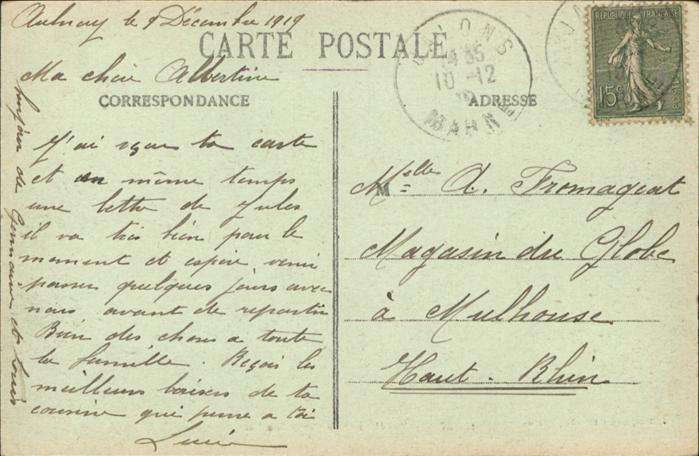 Aulnay le 9 Décembre 1919
CARTE POSTALE
Ma chère Albertine
CORRESPONDANCE
J'ai reçu ta carte
et en même temps
une lettre de Jules
il va très bien pour le
moment et espère venir
passer quelques jours avec
nous avant de repartir
Bien des choses a toute
la famille. Reçois les
meilleurs baisers de ta
cousine qui pense a toi
Lucie
de Germaine et Louis
ADRESSE
Melle A. Fromageat
Magasin du Globe
à Mulhouse
Haut-Rhin
CHALONS
10-12
MARNE
REPUBLIQUE FRANÇAISE
15c